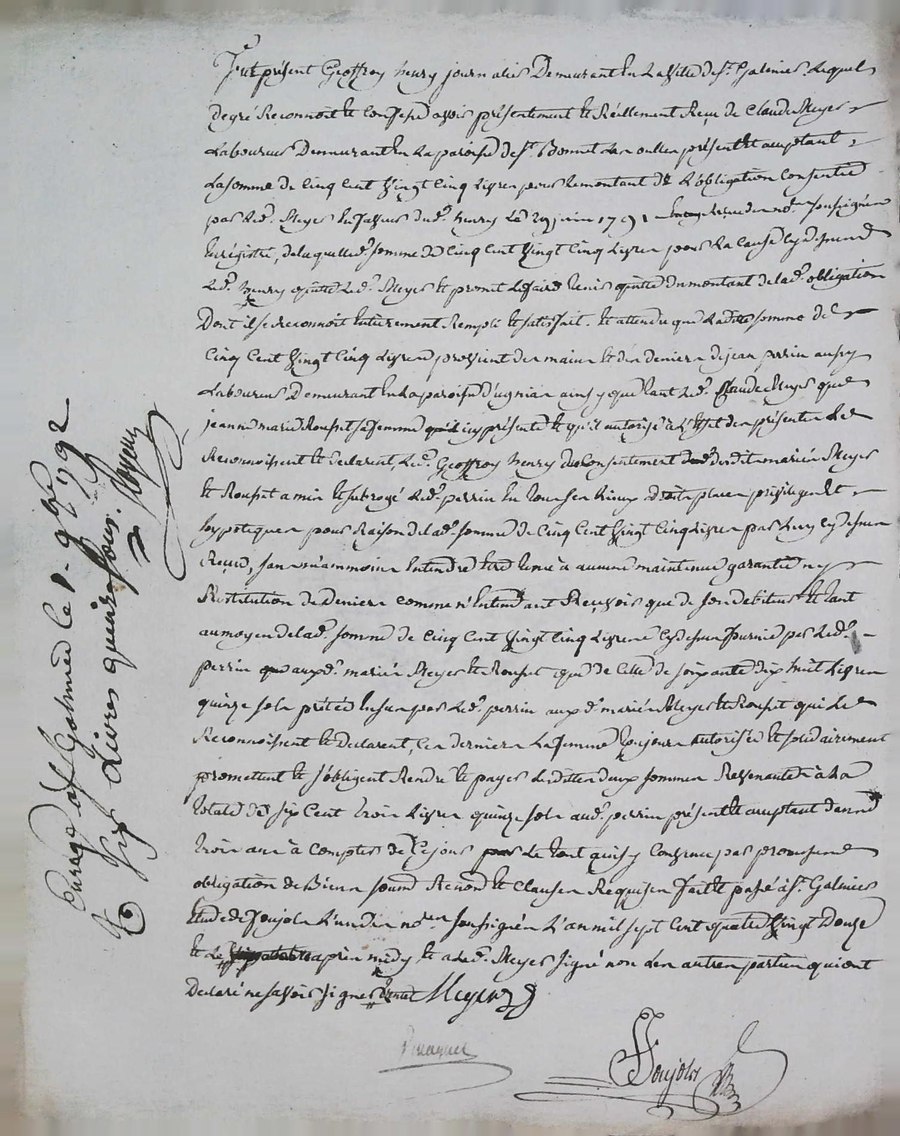 Fut présent Geoffroy henry journalier Demeurant En La Ville de St. Galmier Lequel
de gré Reconnoit et Confesse avoir présentement et Réellement Reçu de Claude Meyer
Laboureur Demeurant En La paroisse de St. Bonnet Les oulles présent et acceptant
La somme de Cinq Cent Vingt Cinq Livres pour Le montant de L'obligation Consentie
par Led. Meyer En faveur dud. henry Le 29 juin 1791 nore. soussigné
Enrégistré, de laquelle d. somme de Cinq Cent Vingt Cinq Livres pour La Cause Cy dessus
Led. henry quitte Led. Meyer et promet Le faire tenir quitte du montant de lad. obligation
Dont il se reconnoit Entierement Rempli et satisfait. Et attendu que Ladite somme de
Cinq Cent Vingt Cinq Livres provient des mains et des deniers de jean perrin aussy
Laboureur Demeurant En La paroisse d'avgnian ainsy que tant Led. Claude Meyer que
jeanne marie Rousset sa femme Cy présente et qu'il autorise à L'Effet des présentes Le
Reconnoissent et Declarent, Led. Geoffroy henry du Consentement desdits mariés Meyer
et Rousset a mis et subrogé Led. perrin En tous ses Lieux droits places privileges et
hypoteques pour Raison de lad. somme de Cinq Cent Vingt Cinq Livres par Luy Cy dessus
Reçue, sans néammoins Entendre Etre tenu à aucune maintenue garantie ny
Restitution de Deniers comme n'Entendant Reçevoir que de son debiteur Et tant
au moyen de lad. somme de Cinq Cent Vingt Cinq Livres Cy dessus fournie par Led.
perrin auxd. mariés Meyer et Rousset que de Celle de soixante dix huit Livres
quinze sols prétée En sus par Led. perrin aux d. mariés Meyer et Rousset qui Le
Reconnoissent et Declarent, Ces derniers La femme toujours autorisée et solidairement
promettent et s'obligent Rendre et payer Lesdittes deux sommes Revenantes à La
totale de six Cent trois Livres quinze sols aud. perrin présent et acceptant dans
trois ans à Compter de Ce jour Le tout ainsy Convenu par promesse
obligation de Biens soumis Renonc et Clauses Requises fait et passé à St. Galmier
Etude de Soujols L'un des nores soussignés L'an mil sept Cent quatre Vingt Douze
et Le après midy et a Led. Meyer signé non Les autres parties qui ont
Declaré ne savoir signer Meyer
Soujols
Enrégé à St Galmier le 8. 9bre 1792
R. six Livres quinze sous.